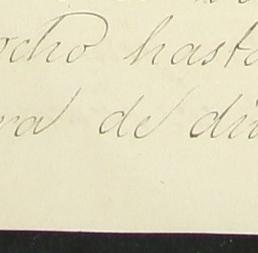 ocho hasta
ra de di